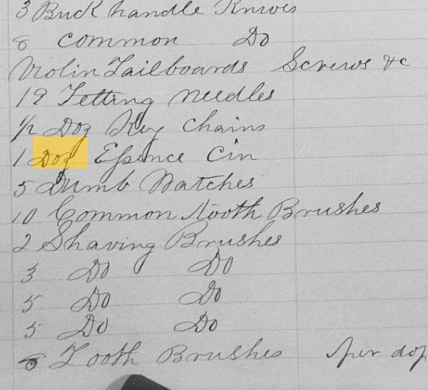 3 Buck handle Knives
8 Common Do
Violin Tailboards Screws &c
19 Tetting Needles
1/2 Doz Key Chains
1 Doz Essence Cin
5 Dumb Watches
10 Common Tooth Brushes
2 Shaving Brushes
3 Do Do
5 Do Do
5 Do Do
6 Tooth Brushes per doz